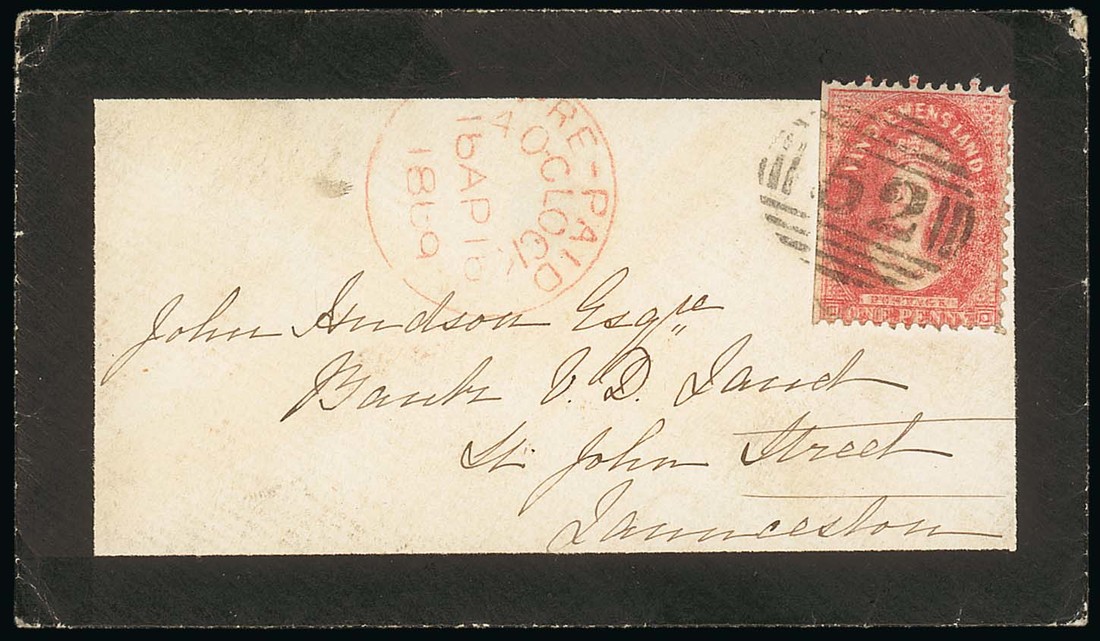 PRE-PAID
4 OCLOCK
16 AP 16
1869
VAN DIEMENS LAND
52
POSTAGE
ONE PENNY
John Hudson Esqre
Bank V. D. Land
St John Street
Launceston